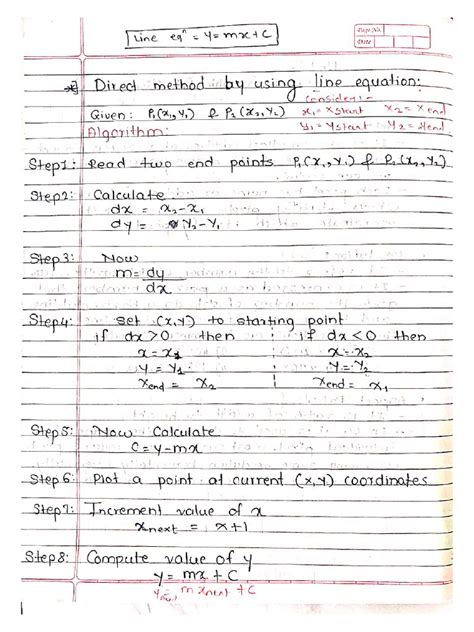 Line eqn = y=mx+c
Page No.
Date
Direct method by using line equation:
Consider:-
Given: P1(x1,y1) & P2(x2,y2) x1=xstart x2=xend
Algorithm: y1=ystart y2=yend
Step1: Read two end points P1(x1,y1) & P2(x2,y2)
Step2: Calculate
dx = x2-x1
dy = y2-y1
Step3: Now
m=dy
dx
Step4: Set (x,y) to starting point
if dx>0 then if dx<0 then
x=x1 x=x2
y=y1 y=y2
xend = x2 xend = x1
Step5: Now Calculate
C=y-mx
Step6: Plot a point at current (x,y) coordinates
Step7: Increment value of x
xnext = x+1
Step8: Compute value of y
y=mx+c
m xnext +c